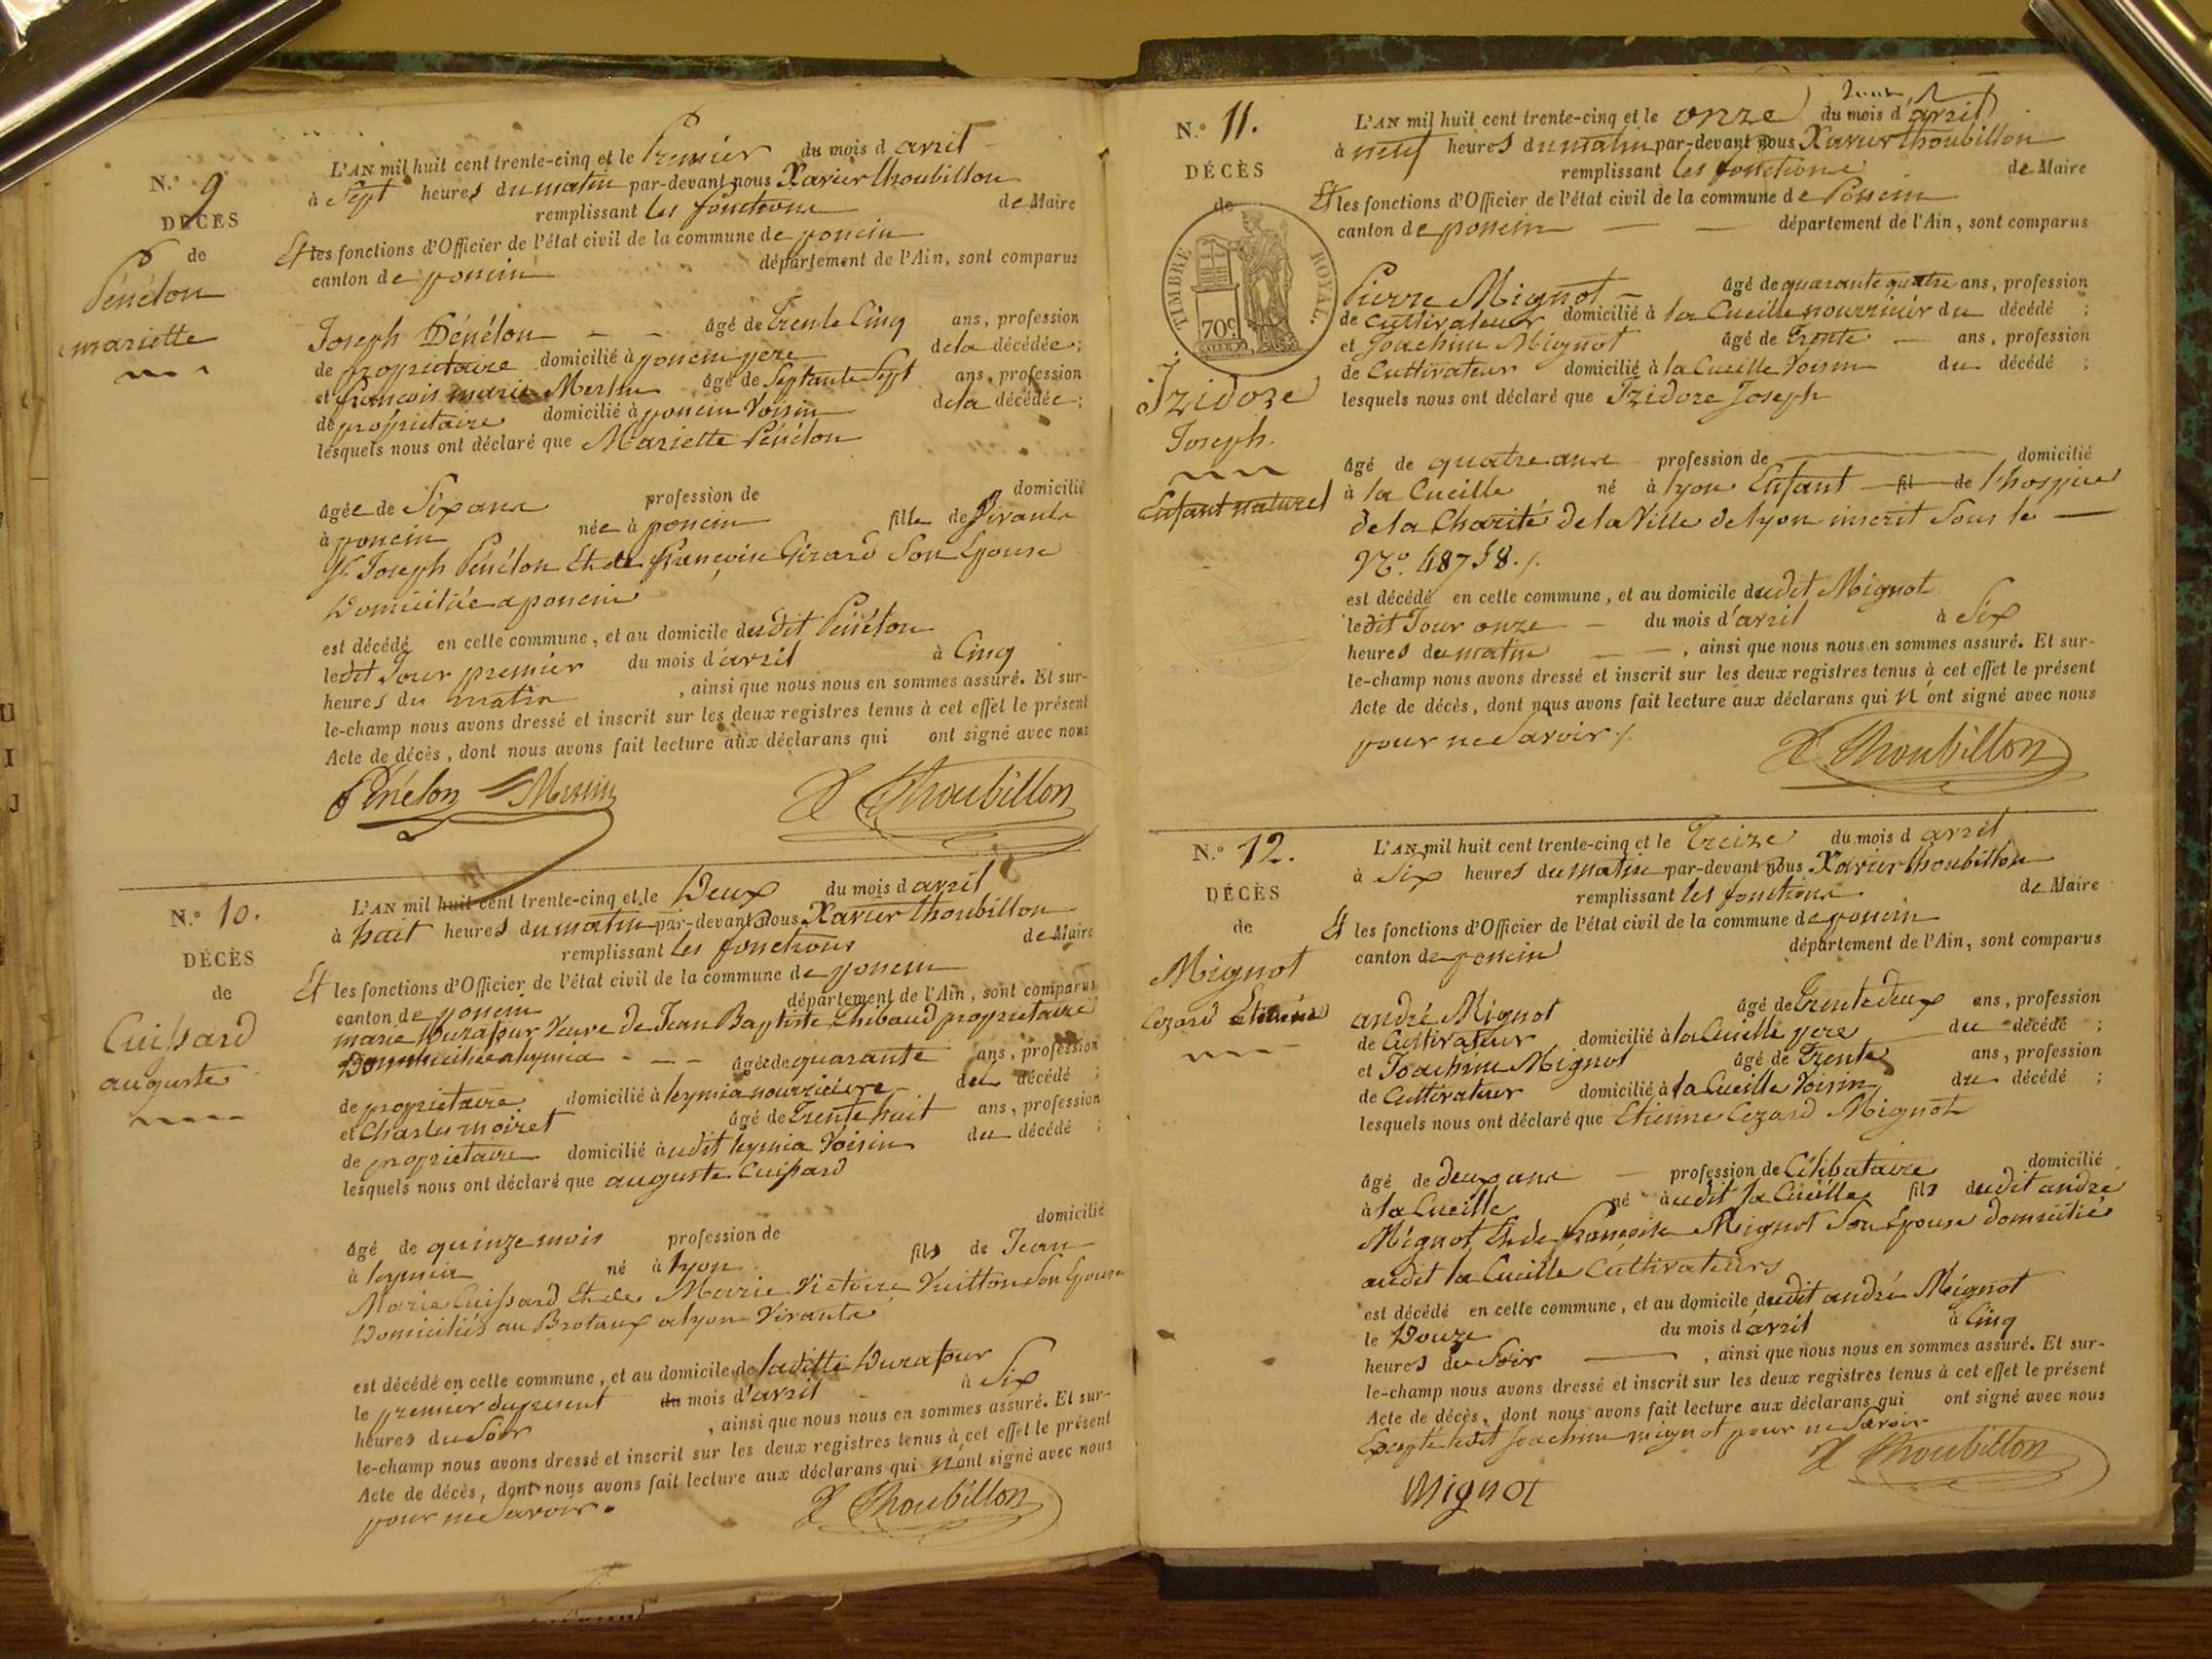 N.° 9
DÉCÈS
de
Pénélon
mariette
L'AN mil huit cent trente-cinq et le Premier du mois d avril
à Sept heures du matin par-devant nous Xavier Thoubillon
remplissant les fonctions de Maire
Et les fonctions d'Officier de l'état civil de la commune de poncin
canton de poncin département de l'Ain, sont comparus
Joseph Pénélon âgé de Trente Cinq ans, profession
de propriétaire domicilié à poncin pere de la décédée;
et françois marie Merlin âgé de Septante Sept ans, profession
de propriétaire domicilié à poncin Voisin de la décédée;
lesquels nous ont déclaré que Mariette Pénélon
âgée de Six ans profession de domicilié
à poncin née à poncin fille de Vivants
Sr. Joseph Pénélon Et de françoise Girard Son Epouse
Domiciliée a poncin
est décédé en cette commune, et au domicile dudit Pénélon
ledit Jour premier du mois d'avril à Cinq
heures du matin , ainsi que nous nous en sommes assuré. Et sur-
le-champ nous avons dressé et inscrit sur les deux registres tenus à cet effet le présent
Acte de décès, dont nous avons fait lecture aux déclarans qui ont signé avec nous
Pénélon Merlin X Thoubillon
N.° 10.
DÉCÈS
de
Cuissard
auguste
L'AN mil huit cent trente-cinq et le Deux du mois d avril
à huit heures du matin par-devant nous Xavier Thoubillon
remplissant les fonctions de Maire
Et les fonctions d'Officier de l'état civil de la commune de poncin
canton de poncin département de l'Ain, sont comparus
marie Durafour Veuve de Jean Baptiste Thibaud propriétaire
Domiciliée a leymia âgée de quarante ans, profession
de propriétaire domicilié à leymia nourriciere du décédé ;
et Charles moiret âgé de Trente huit ans, profession
de propriétaire domicilié audit leymia Voisin du décédé ;
lesquels nous ont déclaré que auguste Cuissard
âgé de quinze mois profession de domicilié
à leymia né à lyon fils de Jean
Marie Cuissard Et de Marie Victoire Vuitton Son Epouse
Domiciliés au Brotaux a lyon Vivants
est décédé en cette commune, et au domicile de ladite Durafour
le premier du present du mois d'avril à Six
heures du Soir , ainsi que nous nous en sommes assuré. Et sur-
le-champ nous avons dressé et inscrit sur les deux registres tenus à cet effet le présent
Acte de décès, dont nous avons fait lecture aux déclarans qui n'ont signé avec nous
pour ne Savoir. X Thoubillon
N.° 11.
DÉCÈS
de
TIMBRE ROYAL.
70c
Izidore
Joseph.
Enfant naturel
L'AN mil huit cent trente-cinq et le onze du mois d'avril
à neuf heures du matin par-devant nous Xavier Thoubillon
remplissant les fonctions de Maire
Et les fonctions d'Officier de l'état civil de la commune de Poncin
canton de poncin département de l'Ain, sont comparus
Pierre Mignot âgé de quarante quatre ans, profession
de Cultivateur domicilié à la Cueille nourricier du décédé ;
et Joachim Mignot âgé de Trente ans, profession
de Cultivateur domicilié à la Cueille Voisin du décédé ;
lesquels nous ont déclaré que Izidore Joseph
âgé de quatre ans profession de domicilié
à la Cueille né à lyon Enfant fil de l'hospice
de la Charité de la Ville de lyon inscrit Sous le
No. 48758./.
est décédé en cette commune, et au domicile dudit Mignot
ledit Jour onze du mois d'avril à Six
heures du matin , ainsi que nous nous en sommes assuré. Et sur-
le-champ nous avons dressé et inscrit sur les deux registres tenus à cet effet le présent
Acte de décès, dont nous avons fait lecture aux déclarans qui n'ont signé avec nous
pour ne Savoir./. X Thoubillon
N.° 12.
DÉCÈS
de
Mignot
Cezard Etienne
L'AN mil huit cent trente-cinq et le Treize du mois d avril
à Six heures du matin par-devant nous Xavier Thoubillon
remplissant les fonctions de Maire
Et les fonctions d'Officier de l'état civil de la commune de poncin
canton de poncin département de l'Ain, sont comparus
andré Mignot âgé de Trente deux ans, profession
de Cultivateur domicilié à la Cueille pere du décédé ;
et Joachim Mignot âgé de Trente ans, profession
de Cultivateur domicilié à la Cueille Voisin du décédé ;
lesquels nous ont déclaré que Etienne Cezard Mignot
âgé de deux ans profession de Célibataire domicilié
à la Cueille né audit la Cueille fils dudit andré
Mignot Et de françoise Mignot Son Epouse domiciliés
audit la Cueille Cultivateurs
est décédé en cette commune, et au domicile dudit andré Mignot
le Douze du mois d'avril à Cinq
heures du Soir , ainsi que nous nous en sommes assuré. Et sur-
le-champ nous avons dressé et inscrit sur les deux registres tenus à cet effet le présent
Acte de décès, dont nous avons fait lecture aux déclarans qui ont signé avec nous
Excepté ledit Joachim mignot pour ne Savoir
Mignot X Thoubillon